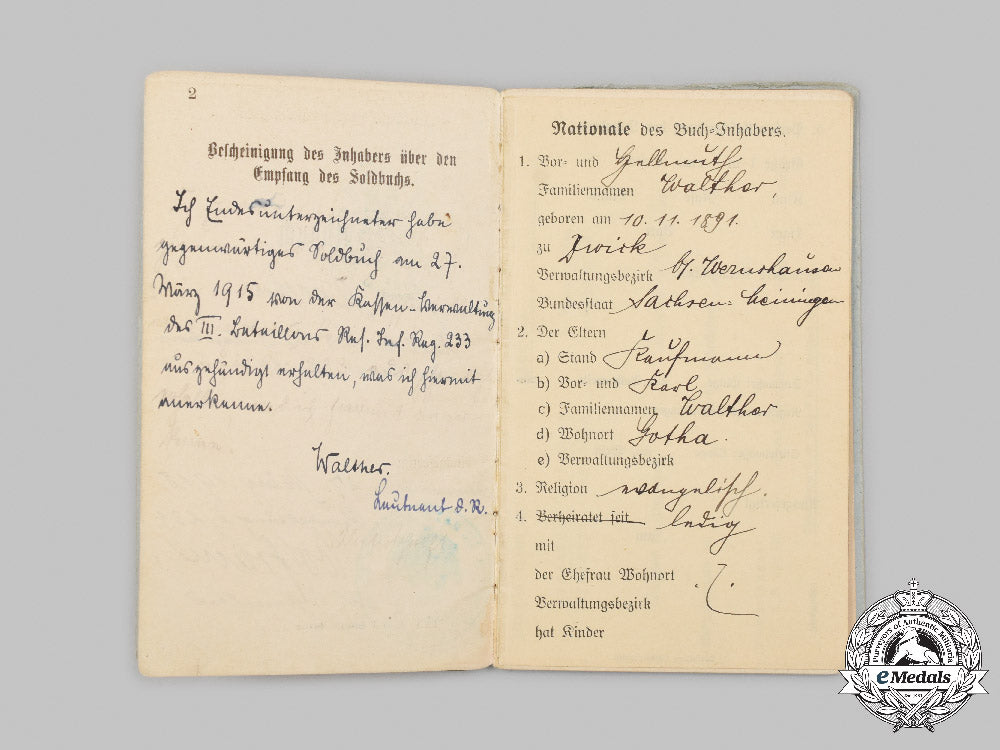 2
Bescheinigung des Inhabers über den
Empfang des Soldbuchs.
Ich Endesunterzeichneter habe
gegenwärtiges Soldbuch am 27.
März 1915 von der Kassen-Verwaltung
des III. Bataillons Res. Inf. Reg. 233
ausgehändigt erhalten, was ich hiermit
anerkenne.
Walther.
Leutnant d. R.
Nationale des Buch-Inhabers.
1. Vor- und Hellmuth
Familiennamen Walther,
geboren am 10.11.1891.
zu Zwick
Verwaltungsbezirk b/. Wernshausen
Bundesstaat Sachsen-Meiningen
2. Der Eltern
a) Stand Kaufmann
b) Vor- und Karl
c) Familiennamen Walther
d) Wohnort Gotha.
e) Verwaltungsbezirk
3. Religion evangelisch.
4. Verheiratet seit ledig
mit
der Ehefrau Wohnort
Verwaltungsbezirk
hat Kinder
Purveyors of Authentic Militaria
eMedals